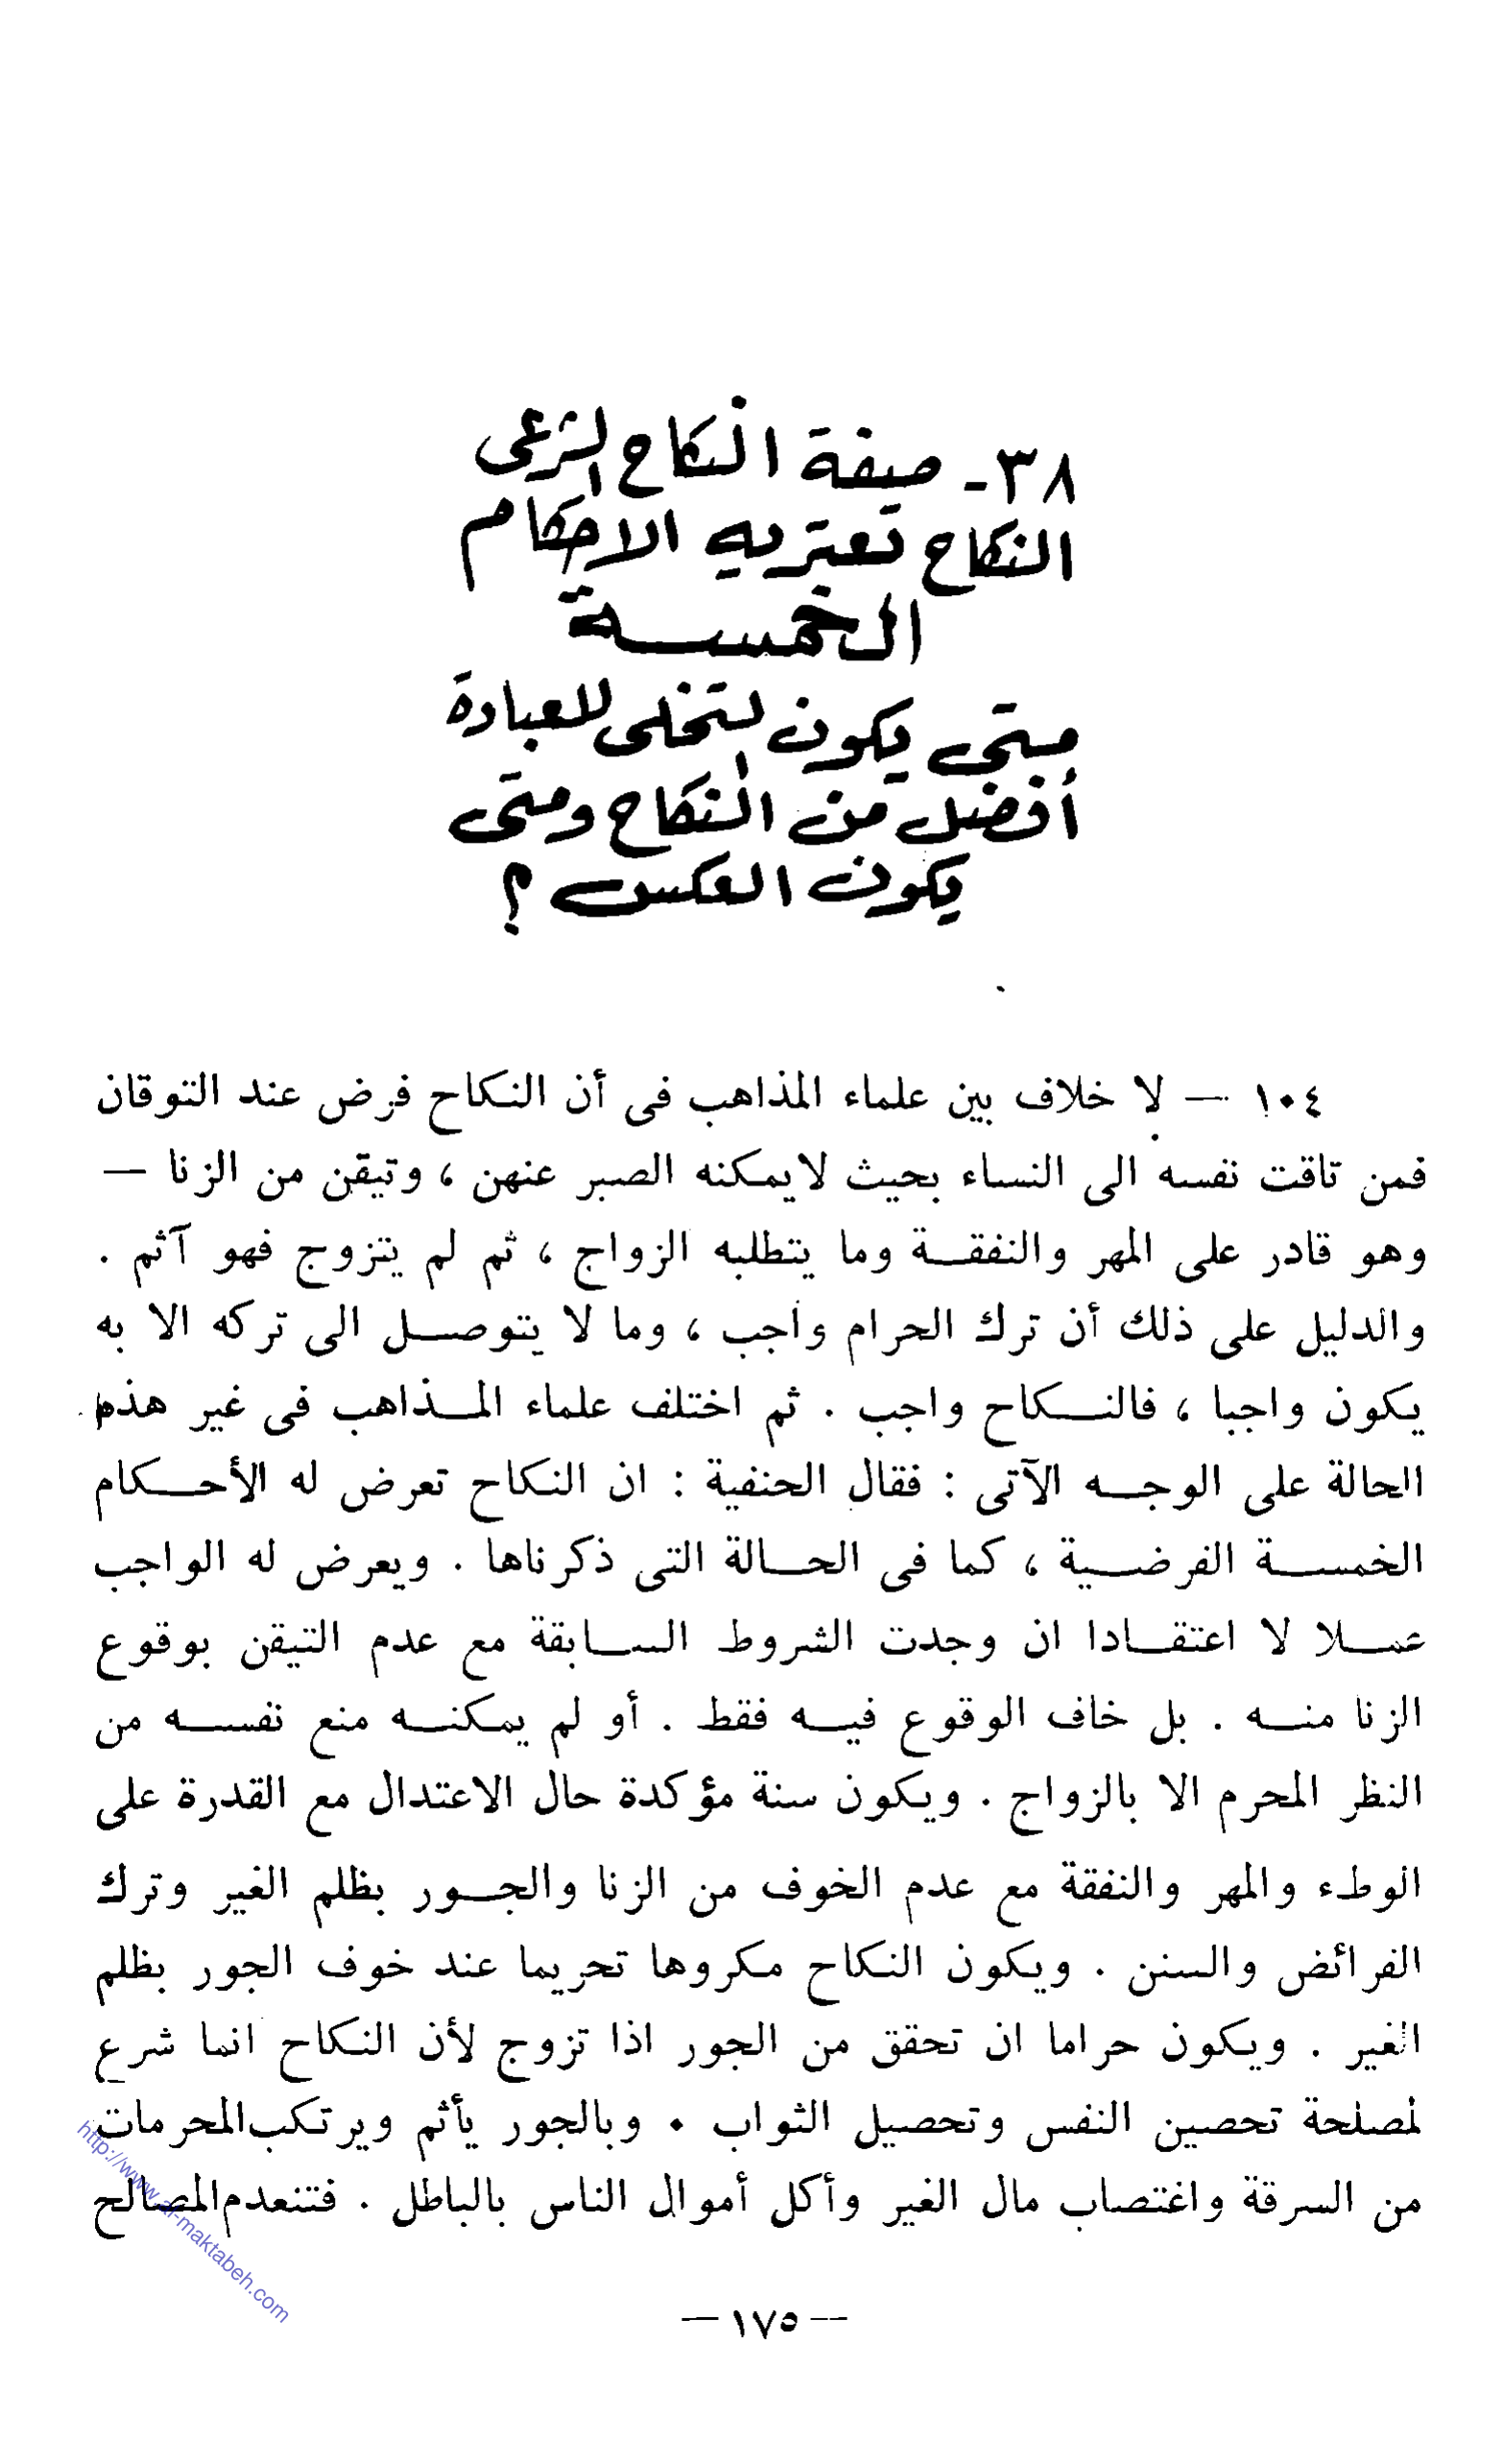 ٣٨ـ صيفة النكاح الشرعى
النكاح تعتريه الاحكام
الخمســـة
متى يكون التخلى للعبادة
أفضل من النكاح ومتى
يكون العكس ؟
١٠٤ — لا خلاف بين علماء المذاهب فى أن النكاح فرض عند التوقان
فمن تاقت نفسه الى النساء بحيث لايمكنه الصبر عنهن ، وتيقن من الزنا —
وهو قادر على المهر والنفقــة وما يتطلبه الزواج ، ثم لم يتزوج فهو آثم .
والدليل على ذلك أن ترك الحرام واجب ، وما لا يتوصــل الى تركه الا به
يكون واجبا ، فالنــكاح واجب . ثم اختلف علماء المــذاهب فى غير هذه
الحالة على الوجــه الآتى : فقال الحنفية : ان النكاح تعرض له الأحــكام
الخمســة الفرضــية ، كما فى الحــالة التى ذكرناها . ويعرض له الواجب
عمــلا لا اعتقــادا ان وجدت الشروط الســابقة مع عدم التيقن بوقوع
الزنا منــه . بل خاف الوقوع فيــه فقط . أو لم يمكنــه منع نفســه من
النظر المحرم الا بالزواج . ويكون سنة مؤكدة حال الاعتدال مع القدرة على
الوطء والمهر والنفقة مع عدم الخوف من الزنا والجــور بظلم الغير وترك
الفرائض والسنن . ويكون النكاح مكروها تحريما عند خوف الجور بظلم
الغير . ويكون حراما ان تحقق من الجور اذا تزوج لأن النكاح انما شرع
لمصلحة تحصين النفس وتحصيل الثواب . وبالجور يأثم ويرتكب المحرمات
من السرقة واغتصاب مال الغير وأكل أموال الناس بالباطل . فتنعدم المصالح
— ١٧٥ —
http://www.al-maktabeh.com